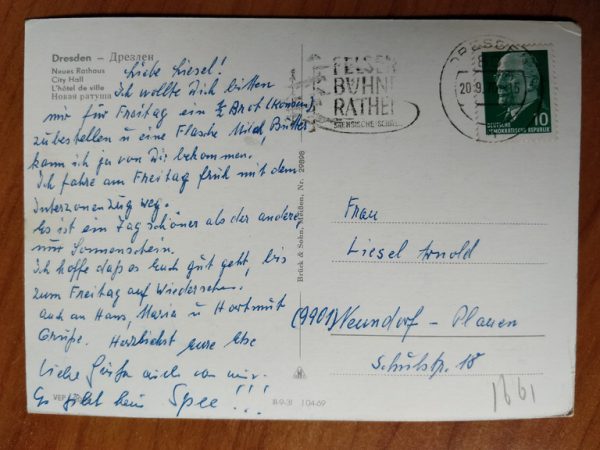 Dresden – Дрезден
Neues Rathaus
City Hall
L'hôtel de ville
Новая ратуша
Liebe Liesel!
Ich wollte Dich bitten
mir für Freitag ein ½ Brot (Konsum)
zubestellen u eine Flasche Milch, Butter
kann ich ja von Dir bekommen.
Ich fahre am Freitag früh mit dem
Interzonenzug weg.
Es ist ein Tag schöner als der andere,
nur Sonnenschein.
Ich hoffe daß es Euch gut geht, bis
zum Freitag auf Wiedersehen.
auch an Hans, Maria u Hartmut
Grüße. Herzlichst Eure
Liebe Grüße auch von mir.
Es gibt kein Spee!!!
VEB
Brück & Sohn, Meißen, Nr. 29898
III-9-31 J 04.69
FELSEN
BÜHNE
RATHEN
SÄCHSISCHE SCHWEIZ
DRESDEN
20.9.
10
DEUTSCHE
DEMOKRATISCHE REPUBLIK
Frau
Liesel Arnold
(9901) Neundorf – Plauen
Schulstr. 18
1861